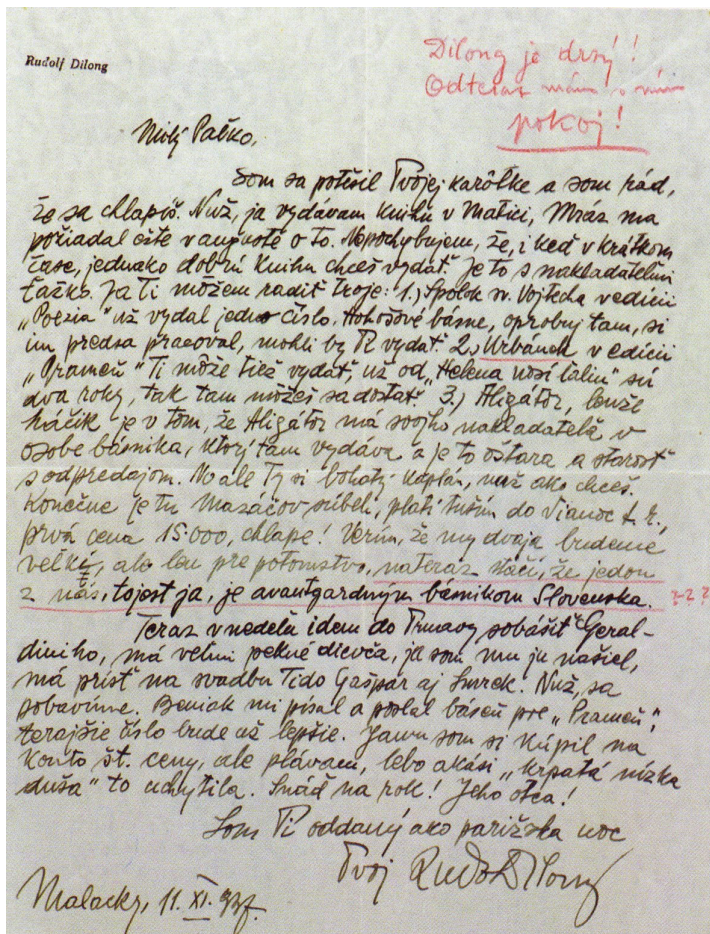 Rudolf Dilong
Dilong je drzý!
Odteraz mám s ním
pokoj!
Milý Paľko,
Som sa potešil Tvojej karôtke a som rád,
že sa chlapíš. Nuž, ja vydávam knihu v Matici, Mráz ma
požiadal ešte v auguste o to. Nepochybujem, že, i keď v krátkom
čase, jednako dobrú knihu chceš vydať. Je to s nakladateľmi
ťažko. Ja Ti môžem radiť troje: 1.) Spolok sv. Vojtecha v edícii
"Poezia" už vydal jedno číslo. Hohošové básne, oprobuj tam, si
im predsa pracoval, mohli by Ti vydať. 2.) Urbánek v edícii
"Prameň" Ti môže tiež vydať, už od "Helena nosí ľaliu" sú
dva roky, tak tam môžeš sa dostať. 3.) Aligátor, lenže
háčik je v tom, že Aligátor má svojho nakladateľa v
osobe básnika, ktorý tam vydáva a je to oštara a starosť
s odpredajom. No ale Ty si bohatý kaplán, nuž ako chceš.
Konečne je tu Mazáčov súbeh, platí tuším do Vianoc t. r.,
prvá cena 15.000, chlape! Verím, že my dvaja budeme
veľkí, ale len pre potomstvo, nateraz stačí, že jeden
z nás, tojest ja, je avantgardným básnikom Slovenska. ???
Teraz v nedeľu idem do Trnavy sobášiť Geral-
diniho, má veľmi pekné dievča, ja som mu ju našiel,
má prísť na svadbu Tido Gašpar aj Smrek. Nuž, sa
pobavíme. Beniak mi písal a poslal báseň pre "Prameň",
terajšie číslo bude až lepšie. Jawu som si kúpil na
konto št. ceny, ale plávam, lebo akási "krpatá nízka
duša" to uchytila. Snáď na rok! Jeho otca!
Som Ti oddaný ako parížska noc
Tvoj Rudolf Dilong
Malacky, 11. XI. 937.